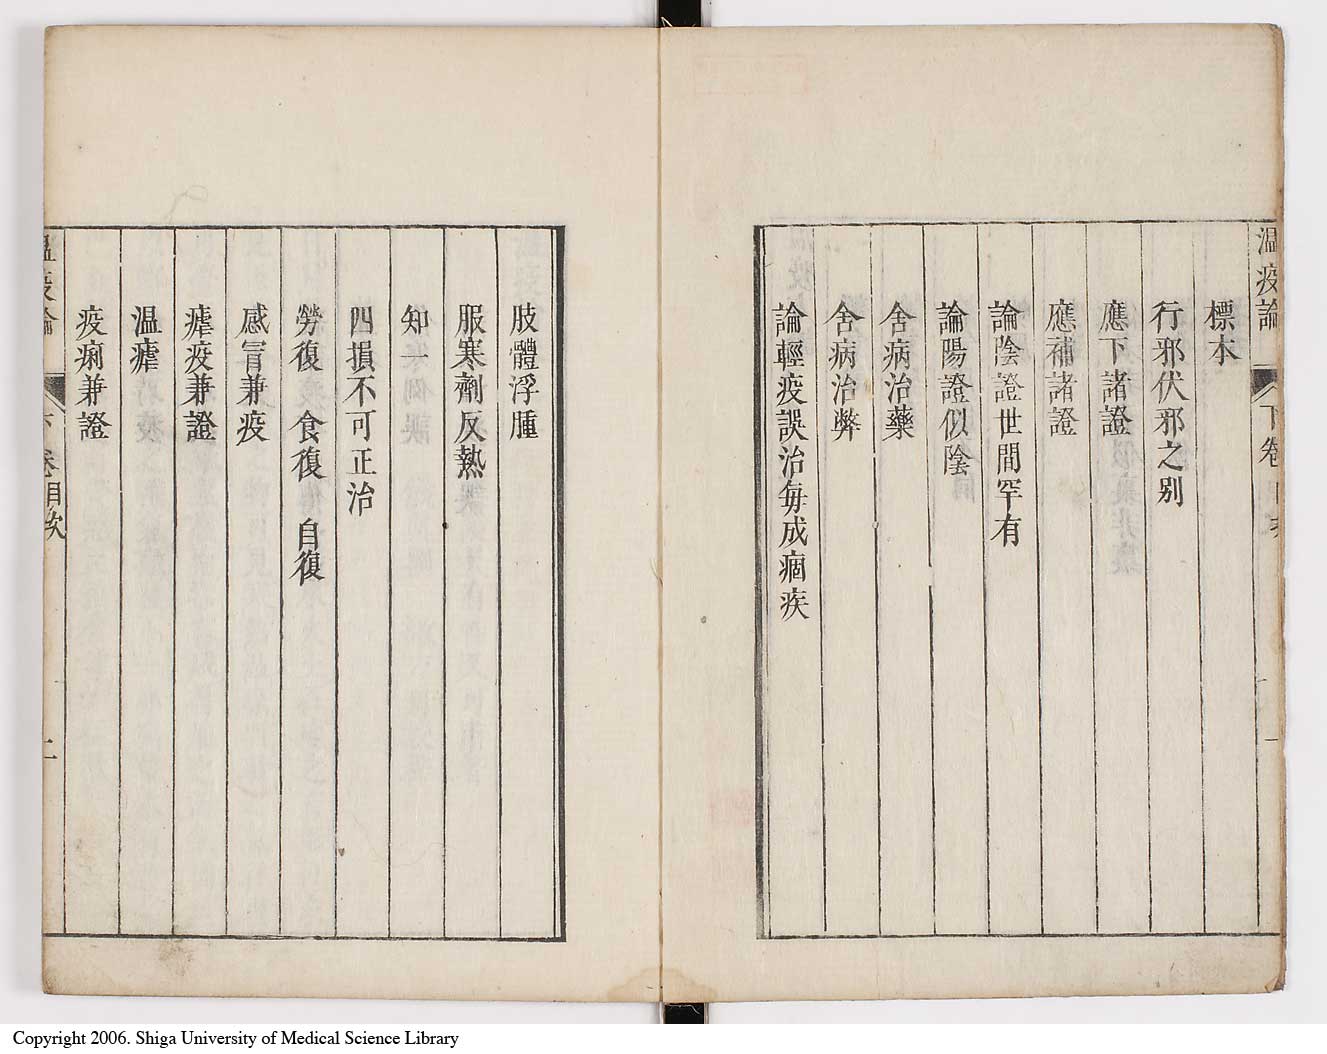 温疫論
標本
行邪伏邪之别
應下諸證
應補諸證
論陰證世間罕有
論陽證似陰
舍病治藥
舍病治弊
論輕疫誤治每成痼疾
肢體浮腫
服寒劑反熱
知一
四損不可正治
勞復 食復 自復
感冒兼疫
瘧疫兼證
温瘧
疫痢兼證
温疫論
下卷目次
二
Copyright 2006. Shiga University of Medical Science Library